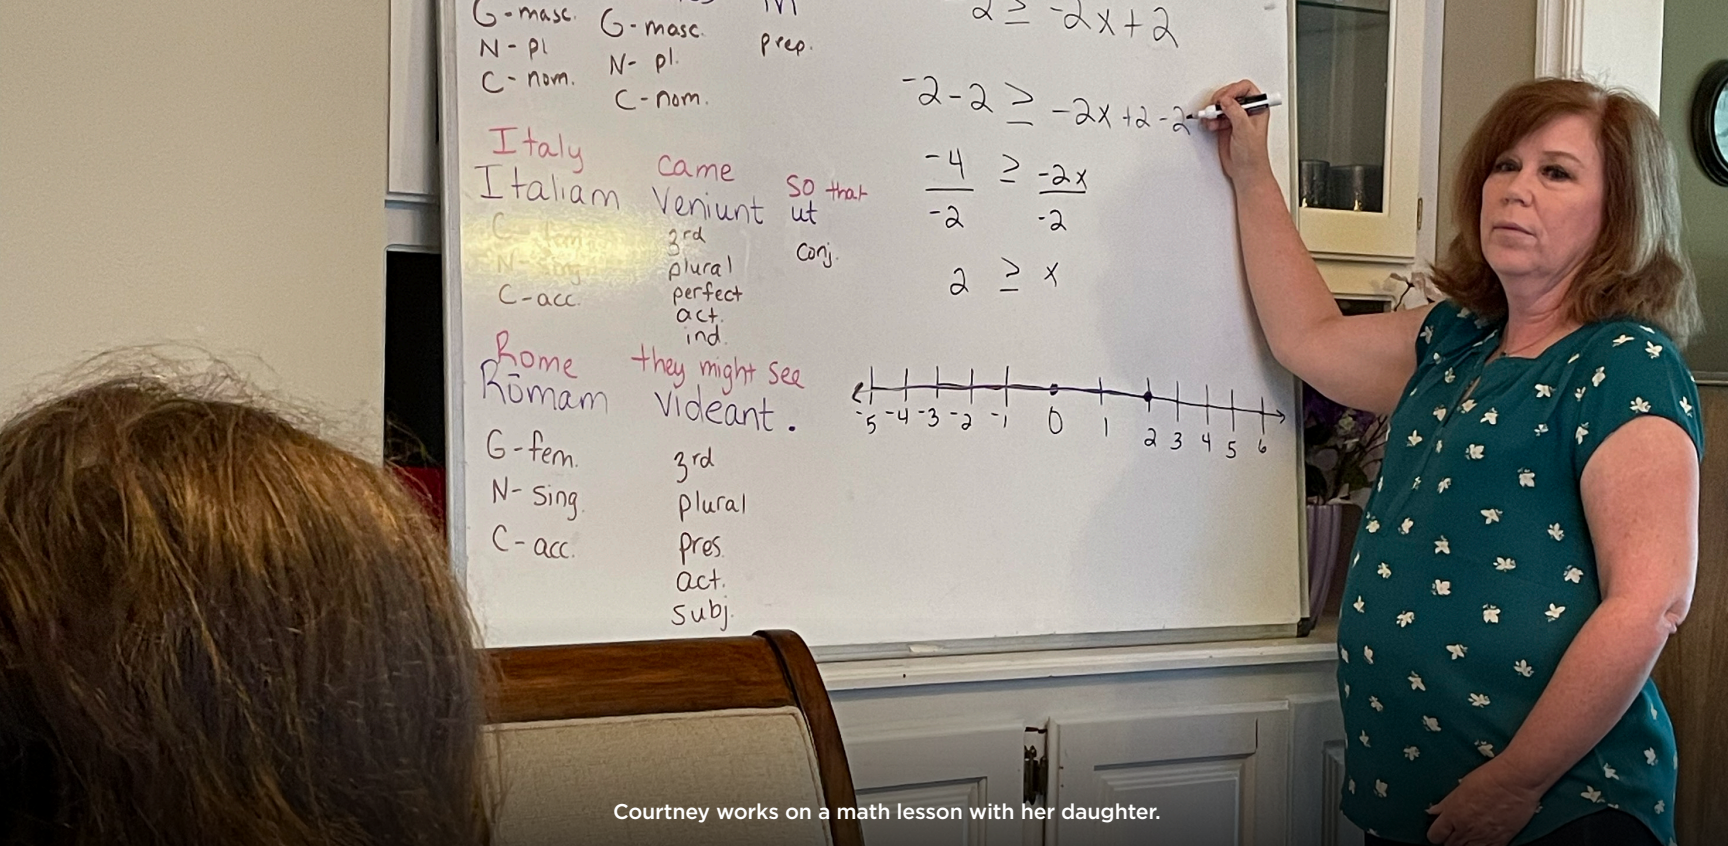 G-masc.
N-pl
C-nom.
G-masc.
N-pl.
C-nom.
prep.
Italy
Italiam
C-acc.
came
Veniunt
3rd
plural
perfect
act.
ind.
so that
ut
conj.
Rome
Rōmam
G-fem.
N-sing.
C-acc.
they might see
Videant.
3rd
plural
pres.
act.
subj.
≥ -2x+2
-2-2 ≥ -2x+2-2
-4 ≥ -2x
-2 -2
2 ≥ x
-5 -4 -3 -2 -1 0 1 2 3 4 5 6
Courtney works on a math lesson with her daughter.